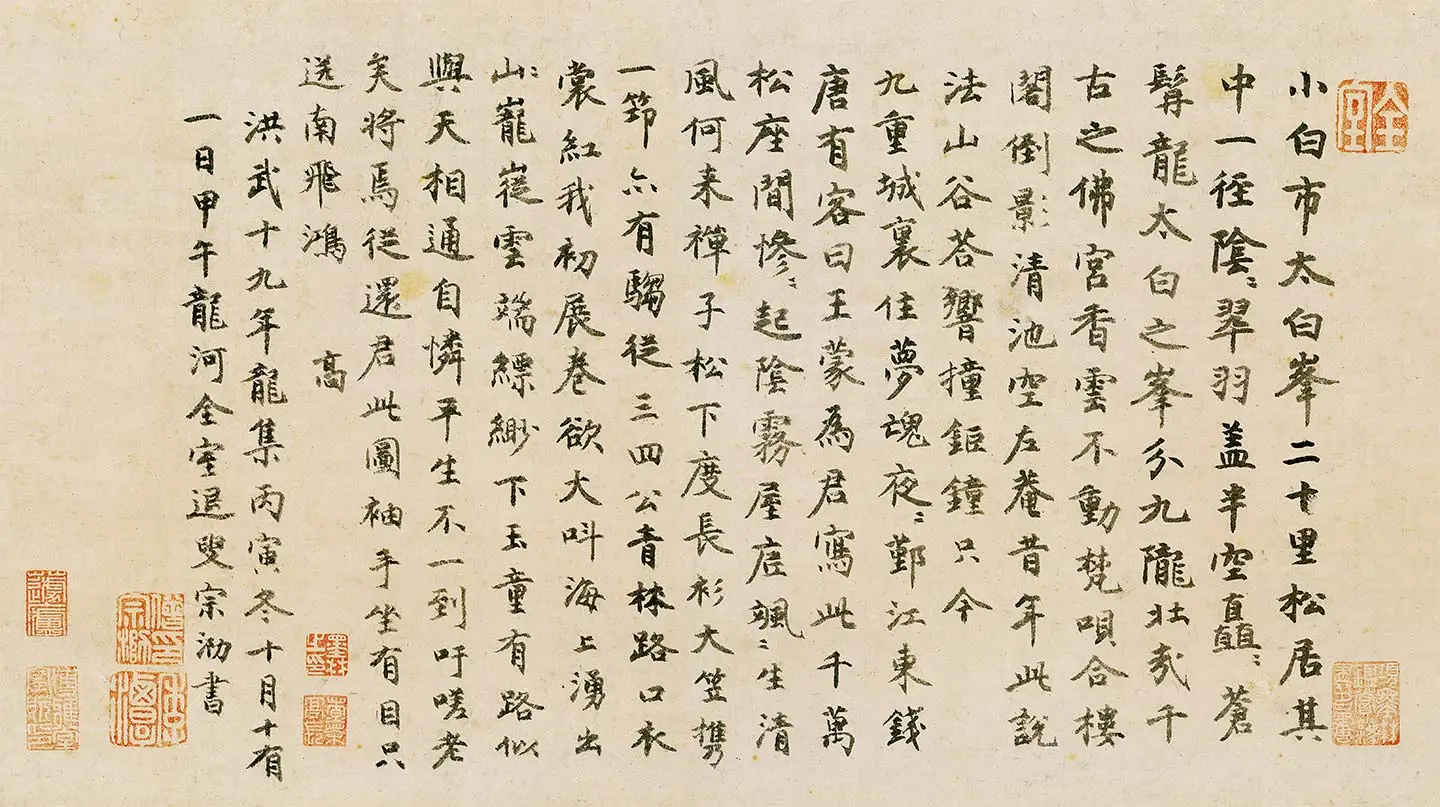 全室
小白市太白峯二十里松居其
中一徑陰〻翠羽蓋半空矗〻蒼
髯龍太白之峯分九隴壯哉千
古之佛宮香雲不動梵唄合樓
閣倒影清池空左菴昔年此說
法山谷荅響撞鉅鐘只今
九重城裏住夢魂夜〻鄞江東錢
唐有客曰王蒙為君寫此千萬
松座間慘〻起陰霧屋底颯〻生清
風何来禪子松下度長衫大笠携
一笻亦有騶從三四公青林路口衣
裳紅我初展卷欲大呌海上湧出
山〻巃嵸雲端縹緲下玉童有路似
與天相通自憐平生不一到吁嗟老
矣將焉從還君此圖袖手坐有目只
送南飛鴻 高
洪武十九年龍集丙寅冬十月十有
一日甲午龍河全室退叟宗泐書